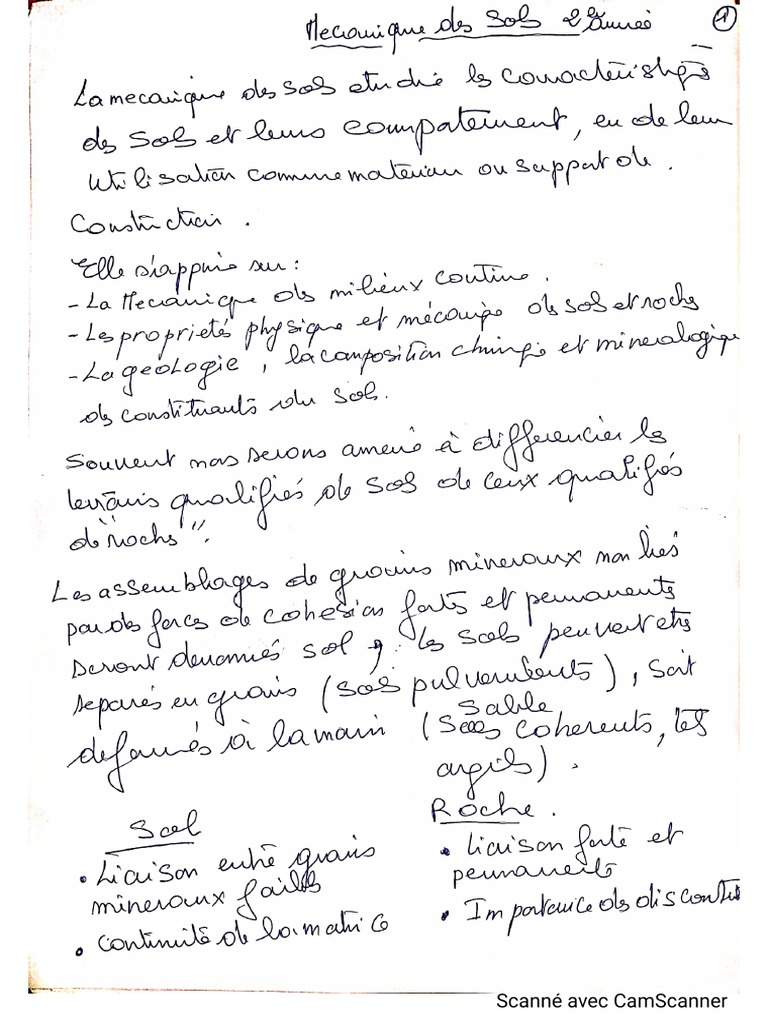 Mecanique des Sols 2e Année
1
La mecanique des sols etudie les caractéristiqs
des sols et leurs comportement, en de leur
utilisation comme materiau ou support de
Construction.
Elle s'appuie sur :
- La Mecanique des milieux continu.
- Les propriétés physique et mécaniqe des sols et rochs
- La geologie, la composition chimiqe et mineralogique
des constituants du sols.
Souvent nous serons amené à differencier les
terrains qualifiés de sols de ceux qualifiés
de "rochs".
Les assemblages de grains mineraux non liés
par des forces de cohesion forts et permanents
seront denomés sol les sols peuvent etre
separés en grains (sols pulverulents), soit
Sable
deformés à la main (Sols coherents, les
argils).
Sol
Roche.
• Liaison entre grains
mineraux faible
• continuité de la matrice
• Liaison forte et
permanente
• Importance des discontin
Scanné avec CamScanner